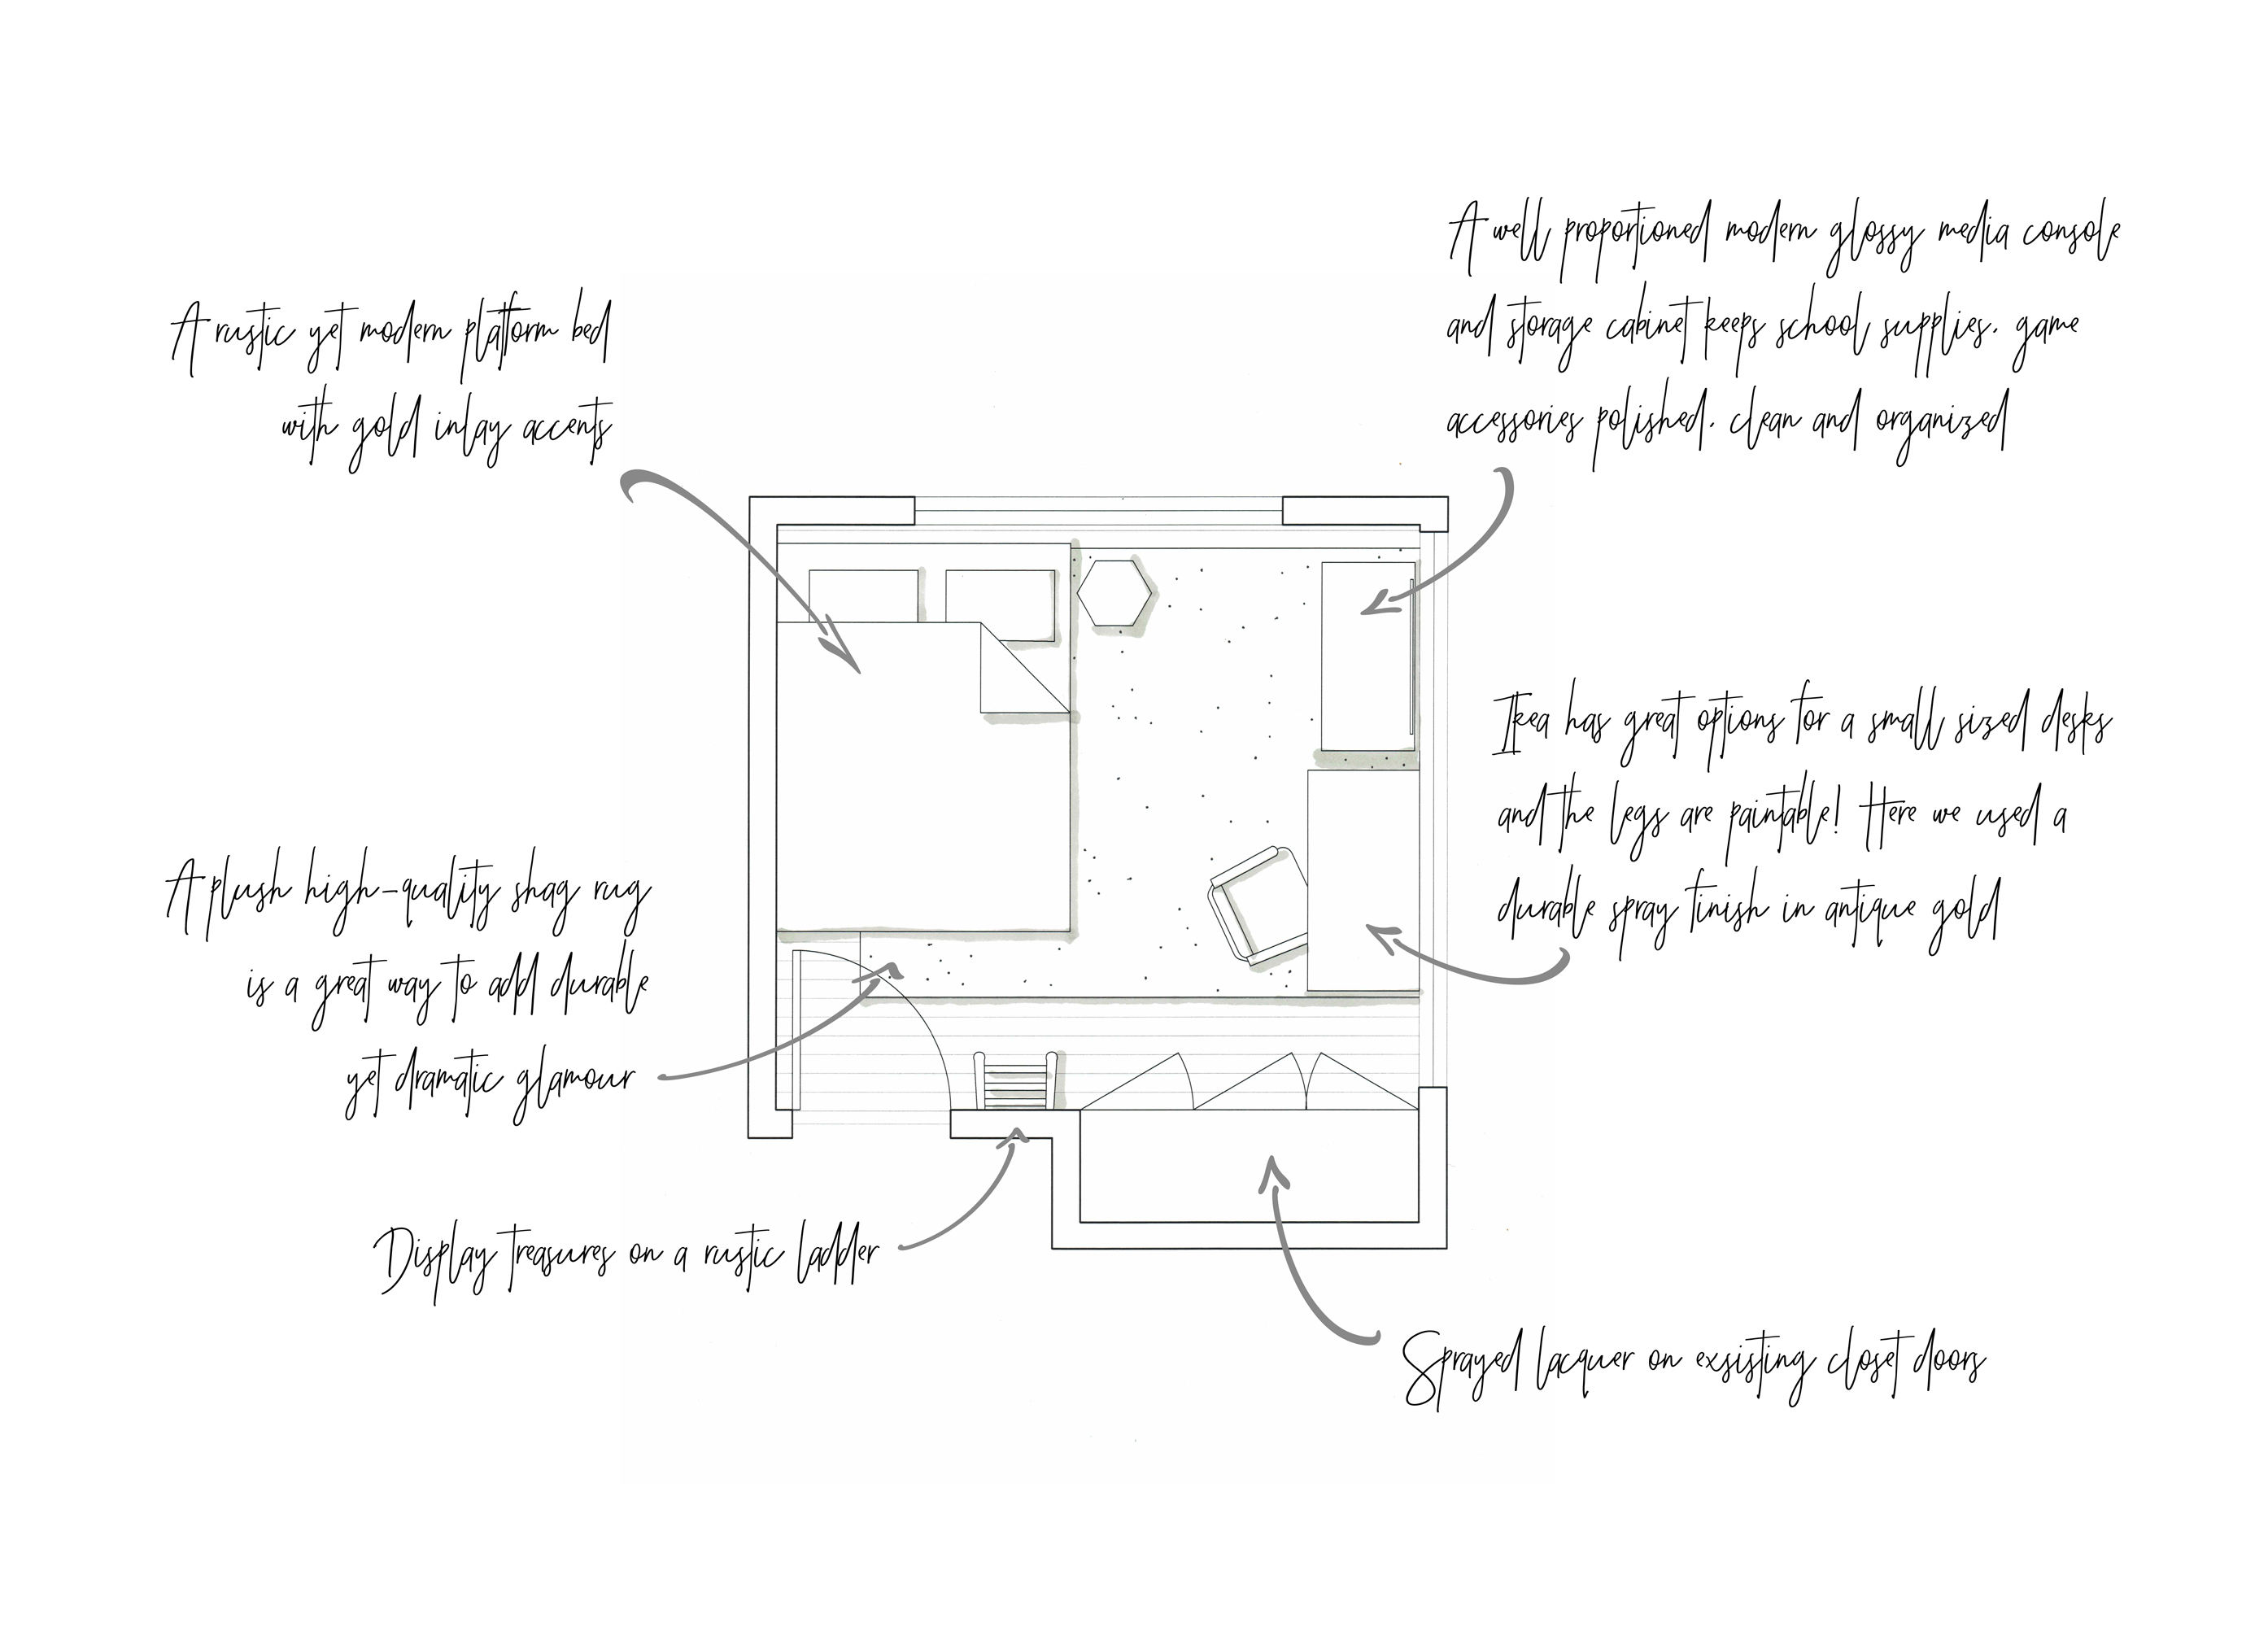 A well proportioned modern glossy media console
and storage cabinet keeps school supplies, game
accessories polished, clean and organized
A rustic yet modern platform bed
with gold inlay accents
Ikea has great options for a small sized desks
and the legs are paintable! Here we used a
durable spray finish in antique gold
A plush high-quality shag rug
is a great way to add durable
yet dramatic glamour
Display treasures on a rustic ladder
Sprayed lacquer on exsisting closet doors